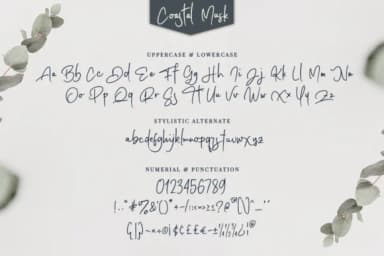 Coastal Musk
UPPERCASE & LOWERCASE
Aa Bb Cc Dd Ee Ff Gg Hh Ii Jj Kk Ll Mm Nn
Oo Pp Qq Rr Ss Tt Uu Vv Ww Xx Yy Zz
STYLISTIC ALTERNATE
abcdefghijklmnopqrstuvwxyz
NUMERIAL & PUNCTUATION
0123456789